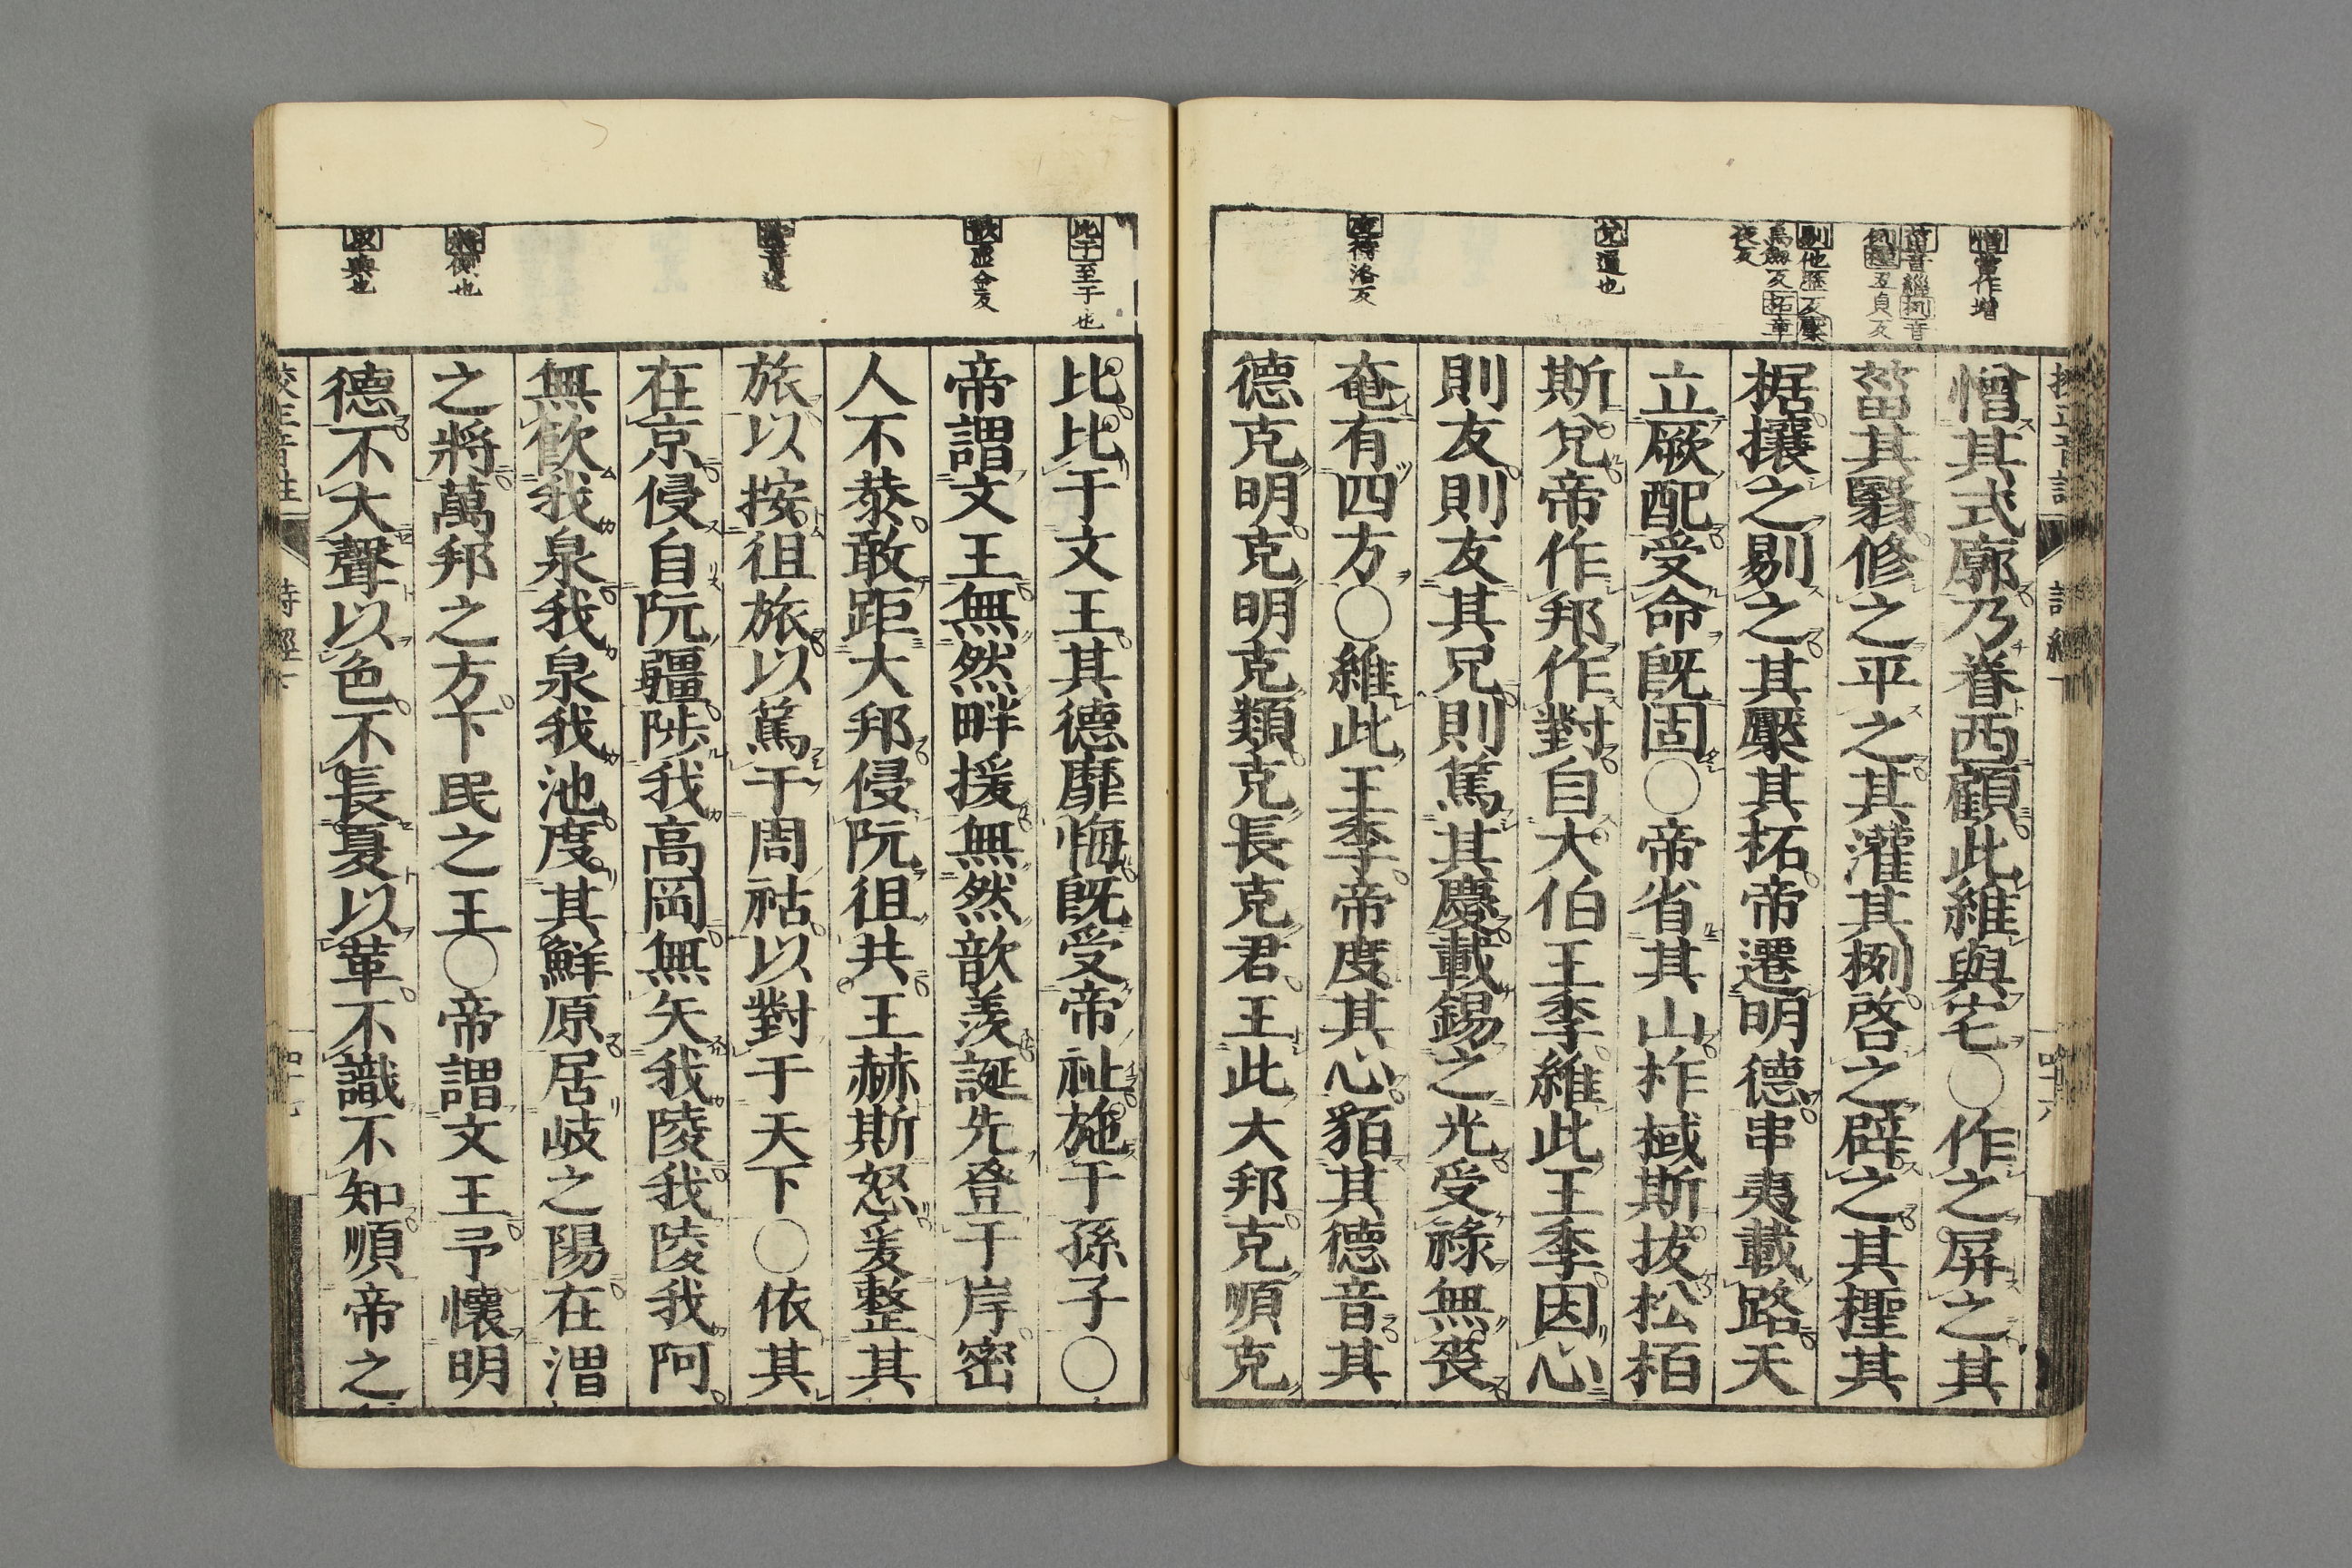 憎當作增
菑音緇 栵音
例 檉丑貞反
剔他歷反 檿
烏劒反 柘章
夜反
兌通也
度待洛反
憎其式廓乃眷西顧此維與宅○作之屏之其
菑其翳修之平之其灌其栵啓之辟之其檉其
椐攘之剔之其檿其柘帝遷明德串夷載路天
立厥配受命既固○帝省其山柞棫斯拔松栢
斯兌帝作邦作對自大伯王季維此王季因心
則友則友其兄則篤其慶載錫之光受祿無喪
奄有四方○維此王季帝度其心貊其德音其
德克明克明克類克長克君王此大邦克順克
比于至于也
比比于文王其德靡悔既受帝祉施于孫子○
帝謂文王無然畔援無然歆羨誕先登于岸密
人不恭敢距大邦侵阮徂共王赫斯怒爰整其
旅以按徂旅以篤于周祜以對于天下○依其
在京侵自阮疆陟我高岡無矢我陵我陵我阿
無飮我泉我泉我池度其鮮原居岐之陽在渭
之將萬邦之方下民之王○帝謂文王予懷明
德不大聲以色不長夏以革不識不知順帝之